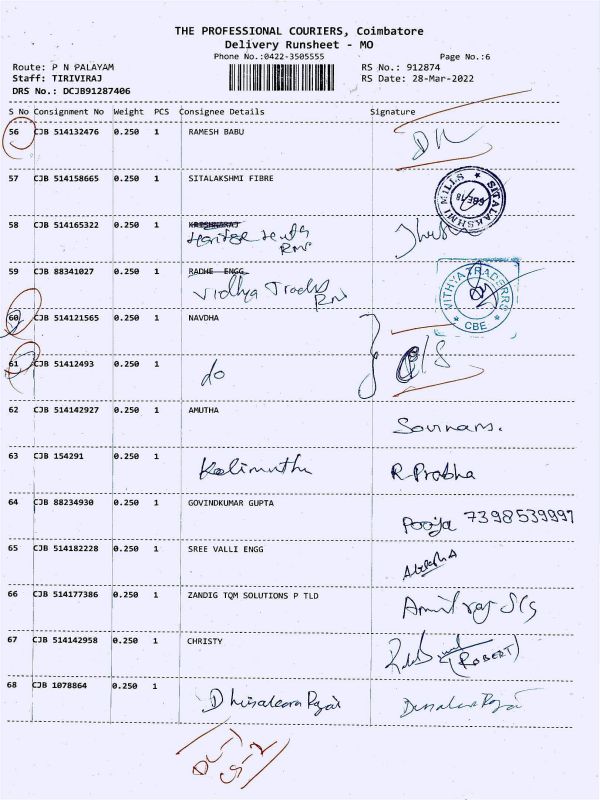 THE PROFESSIONAL COURIERS, Coimbatore
Delivery Runsheet - MO
Phone No.:0422-3505555
Page No.:6
Route: P N PALAYAM
RS No.: 912874
Staff: TIRIVIRAJ
RS Date: 28-Mar-2022
DRS No.: DCJB91287406
S No Consignment No Weight PCS Consignee Details Signature
56 CJB 514132476 0.250 1 RAMESH BABU
57 CJB 514158665 0.250 1 SITALAKSHMI FIBRE
SITALAKSHMI MILLS
58 CJB 514165322 0.250 1 KRISHNARAJ
59 CJB 88341027 0.250 1 RADHE ENGG
Vidhya Trads
VITHYA TRADERRS
CBE
60 CJB 514121565 0.250 1 NAVDHA
61 CJB 51412493 0.250 1 do
62 CJB 514142927 0.250 1 AMUTHA
63 CJB 154291 0.250 1 Kalimuthu R Prabha
64 CJB 88234930 0.250 1 GOVINDKUMAR GUPTA
Pooja 7398539997
65 CJB 514182228 0.250 1 SREE VALLI ENGG
66 CJB 514177386 0.250 1 ZANDIG TQM SOLUTIONS P TLD
67 CJB 514142958 0.250 1 CHRISTY
(ROBERT)
68 CJB 1078864 0.250 1